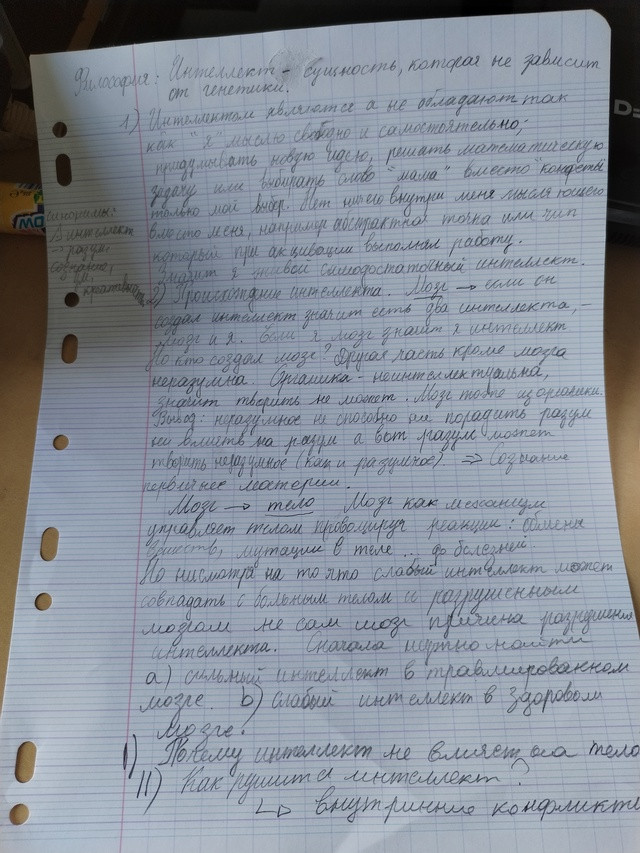 Философия: Интеллект - сущность, которая не зависит
от генетики.
1) Интеллектом являются а не обладают так
как "я" мыслю свободно и самостоятельно;
придумывать новую идею, решать математическую
задачу или выбирать слово "мама" вместо "конфеты"
только мой выбор. Нет ничего внутри меня мыслящего
вместо меня, например абстрактная точка или чип
который при акцивации выполнял работу.
Значит я живой самодостаточный интеллект.
синонимы:
интеллект
разум
сознание,
креативность
2) Происхождение интеллекта. Мозг → если он
создал интеллект значит есть два интеллекта, -
мозг и я. Если я мозг значит я интеллект
Но кто создал мозг? Другая часть кроме мозга
неразумна. Органика - неинтеллектуальна,
значит творить не может. Мозг тоже из органики.
Вывод: неразумное не способно ни породить разум
ни влиять на разум а вот разум может
творить неразумное (как и разумное) ⇒ Сознание
первичнее материи.
Мозг → тело Мозг как механизм
управляет телом провоцируя реакции: обмены
веществ, мутации в теле ... до болезней
Но нисмотря на то что слабый интеллект может
совпадать с больным телом и разрушенным
мозгом не сам мозг причина разрушения
интеллекта. Сначала нужно найти
а) сильный интеллект в травмированном
мозге. b) слабый интеллект в здоровом
мозге.
I) Почему интеллект не влияет на тело
II) Как рушится интеллект?
↳ внутринние конфликты